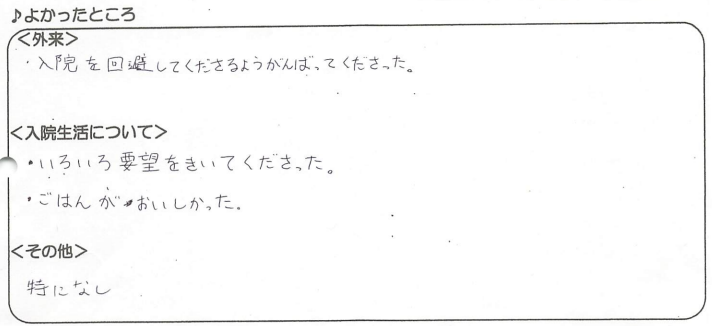 ♪よかったところ
＜外来＞
・入院を回避してくださるようがんばってくださった。
＜入院生活について＞
・いろいろ要望をきいてくださった。
・ごはんがおいしかった。
＜その他＞
特になし